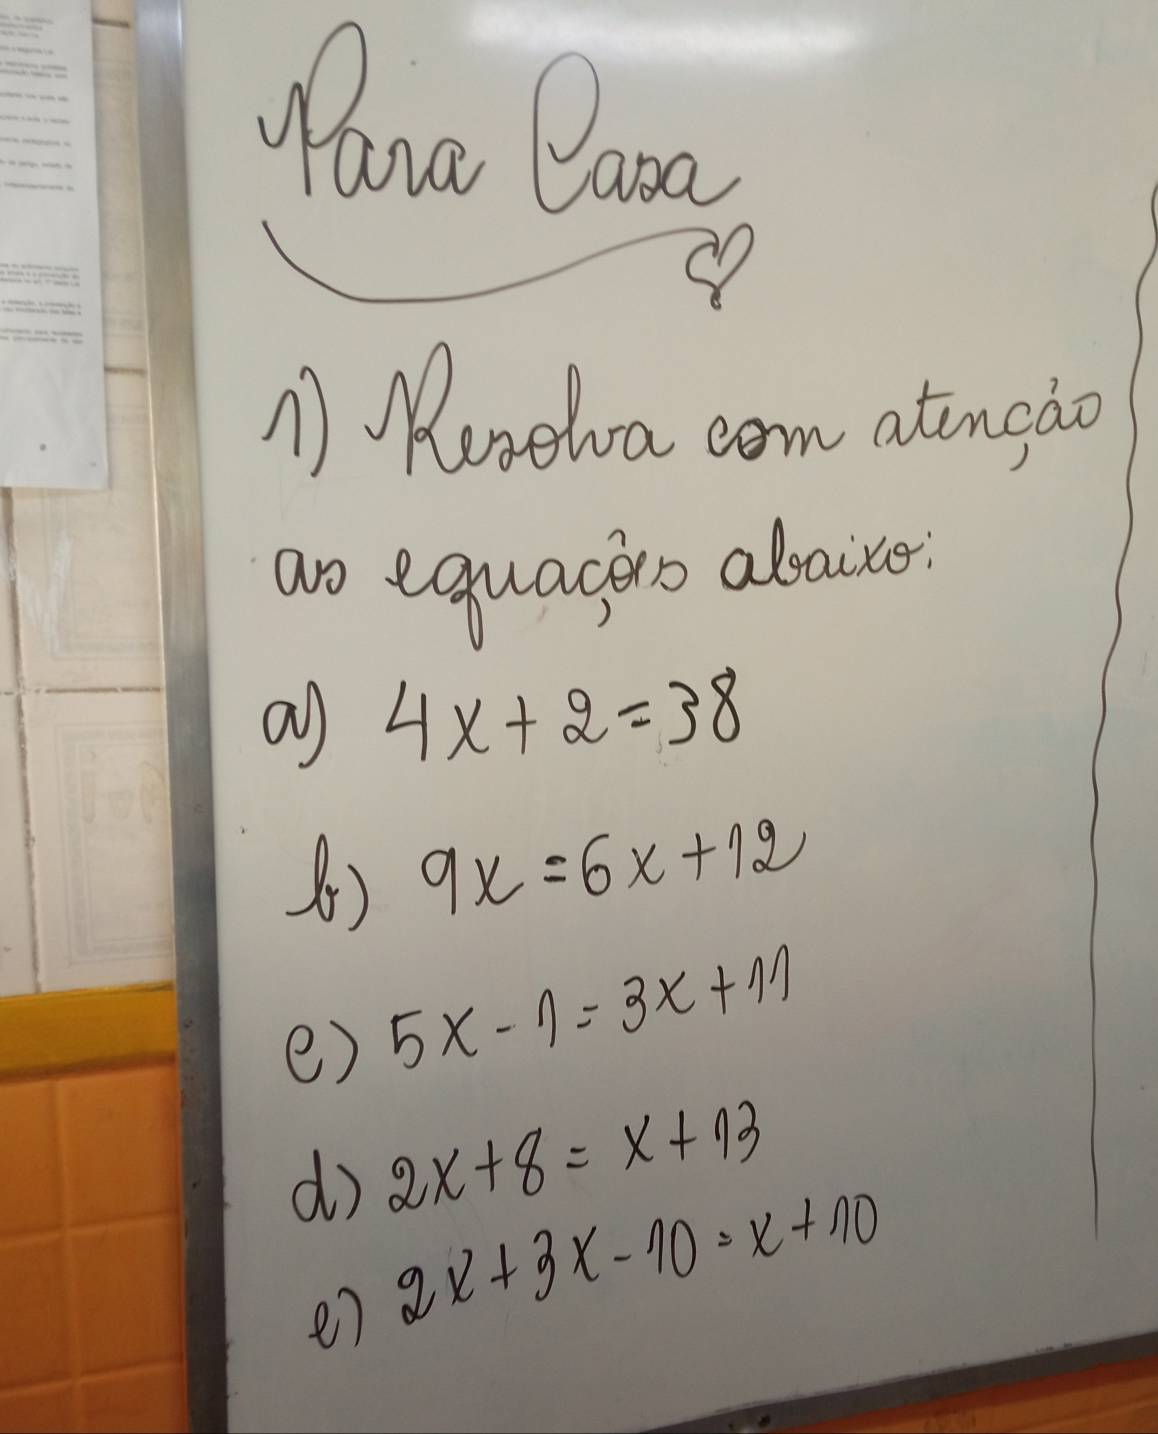 Para Casa
1) Resolva com atenção
as equações abaixo:
a) 4x + 2 = 38
b) 9x = 6x + 12
c) 5x - 1 = 3x + 11
d) 2x + 8 = x + 13
e) 2x + 3x - 10 = x + 10